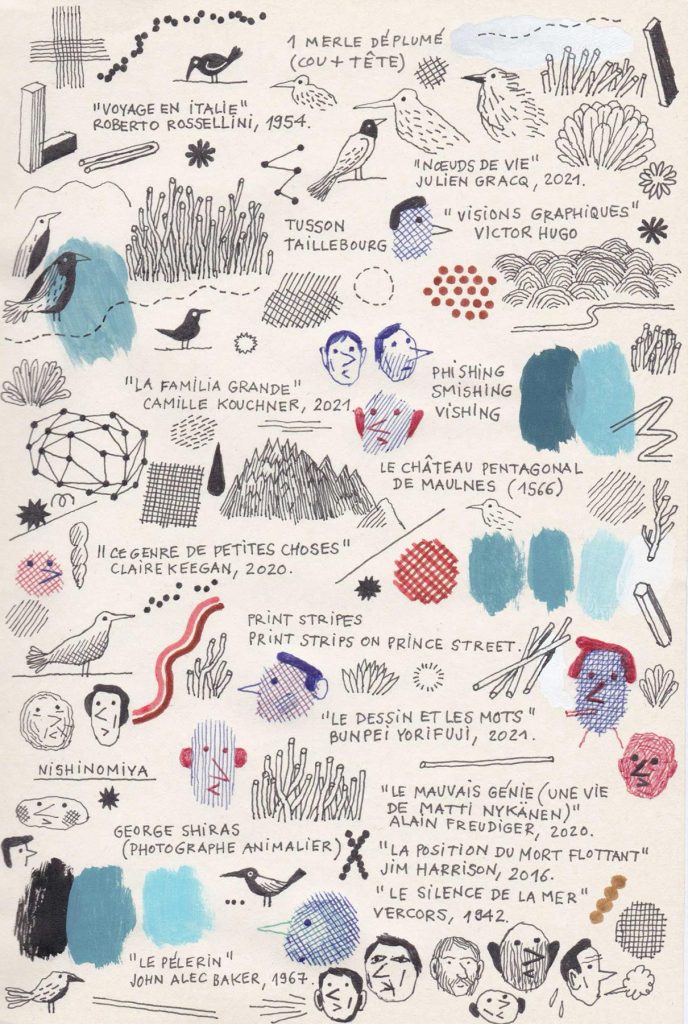 1 MERLE DÉPLUMÉ
(COU + TÊTE)
"VOYAGE EN ITALIE"
ROBERTO ROSSELLINI, 1954.
"NŒUDS DE VIE"
JULIEN GRACQ, 2021.
TUSSON
TAILLEBOURG
"VISIONS GRAPHIQUES"
VICTOR HUGO
PHISHING
SMISHING
VISHING
"LA FAMILIA GRANDE"
CAMILLE KOUCHNER, 2021.
LE CHÂTEAU PENTAGONAL
DE MAULNES (1566)
"CE GENRE DE PETITES CHOSES"
CLAIRE KEEGAN, 2020.
PRINT STRIPES
PRINT STRIPS ON PRINCE STREET.
"LE DESSIN ET LES MOTS"
BUNPEI YORIFUJI, 2021.
NISHINOMIYA
"LE MAUVAIS GÉNIE (UNE VIE
DE MATTI NYKÄNEN)"
ALAIN FREUDIGER, 2020.
GEORGE SHIRAS
(PHOTOGRAPHE ANIMALIER)
"LA POSITION DU MORT FLOTTANT"
JIM HARRISON, 2016.
"LE SILENCE DE LA MER"
VERCORS, 1942.
"LE PÉLERIN"
JOHN ALEC BAKER, 1967.